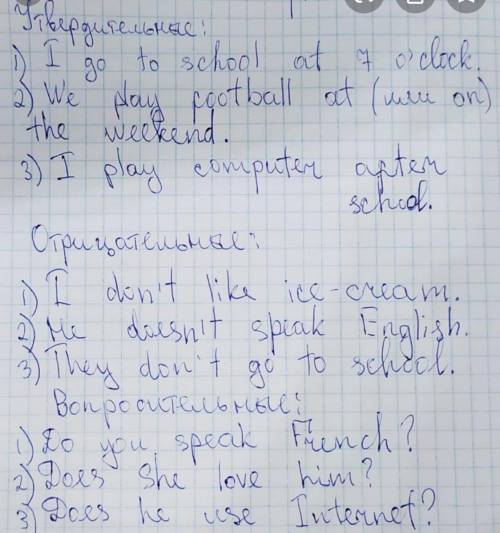 Утвердительные:
1) I go to school at 7 o'clock.
2) We play football at (или on)
the weekend.
3) I play computer after
school.
Отрицательные:
1) I don't like ice-cream.
2) He doesn't speak English.
3) They don't go to school.
Вопросительные:
1) Do you speak French?
2) Does she love him?
3) Does he use Internet?